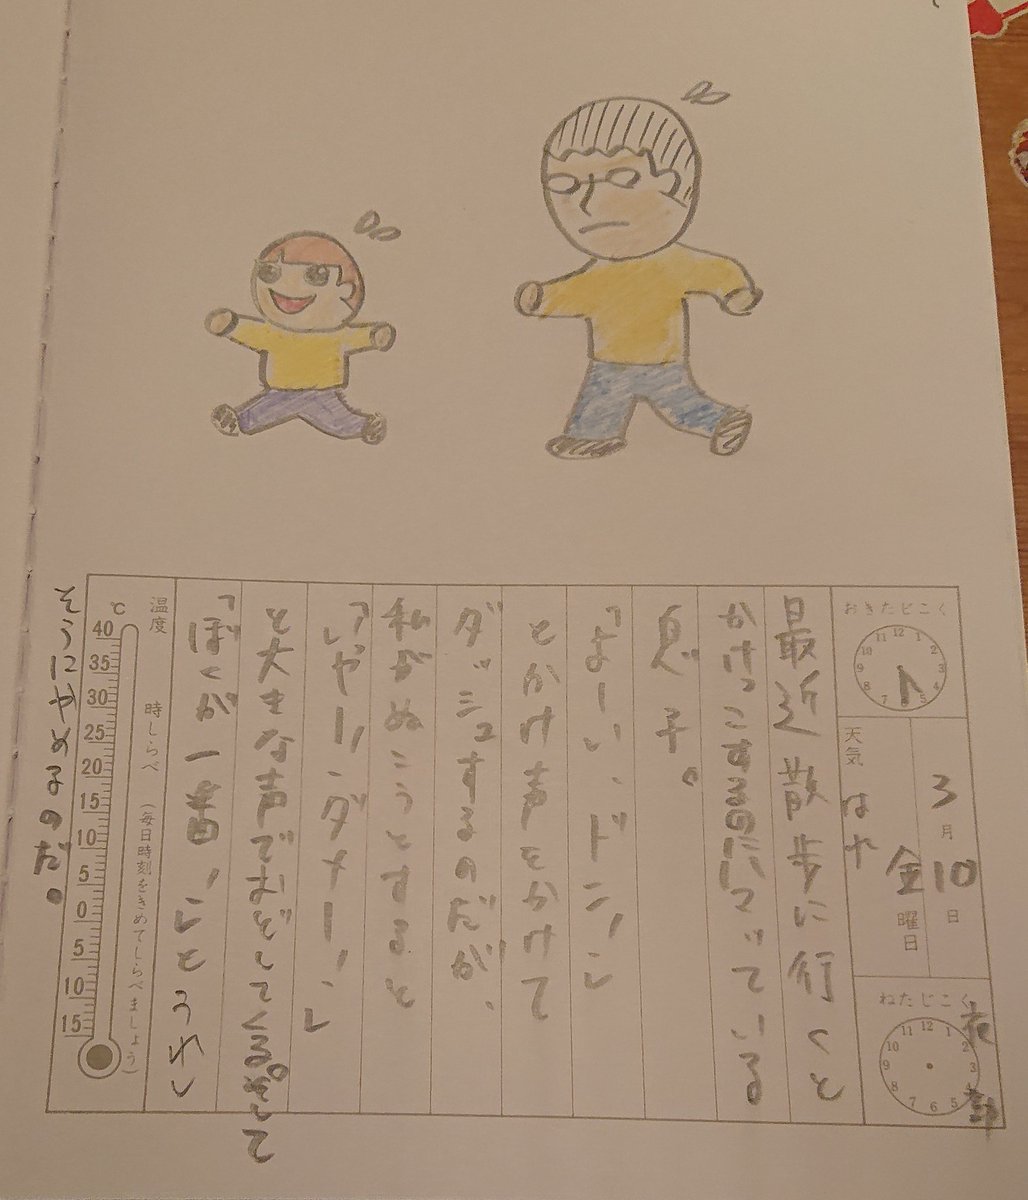 おきたじこく
12 1 2 3 4 5 6 7 8 9 10 11
3月10日
金曜日
天気 はれ
ねたじこく
12 1 2 3 4 5 6 7 8 9 10 11
最近散歩に行くと
かけっこするのにハマっている
息子。
「よーい、ドン!」
とかけ声をかけて
ダッシュするのだが、
私がぬこうとすると
「いやー!、ダメー!」
と大きな声でおどしてくる。そして
「ぼくが一番!」とうれし
温度 時しらべ (毎日時刻をきめてしらべましょう)
℃
40
35
30
25
20
15
10
5
0
5
10
15
そうにやめるのだ。